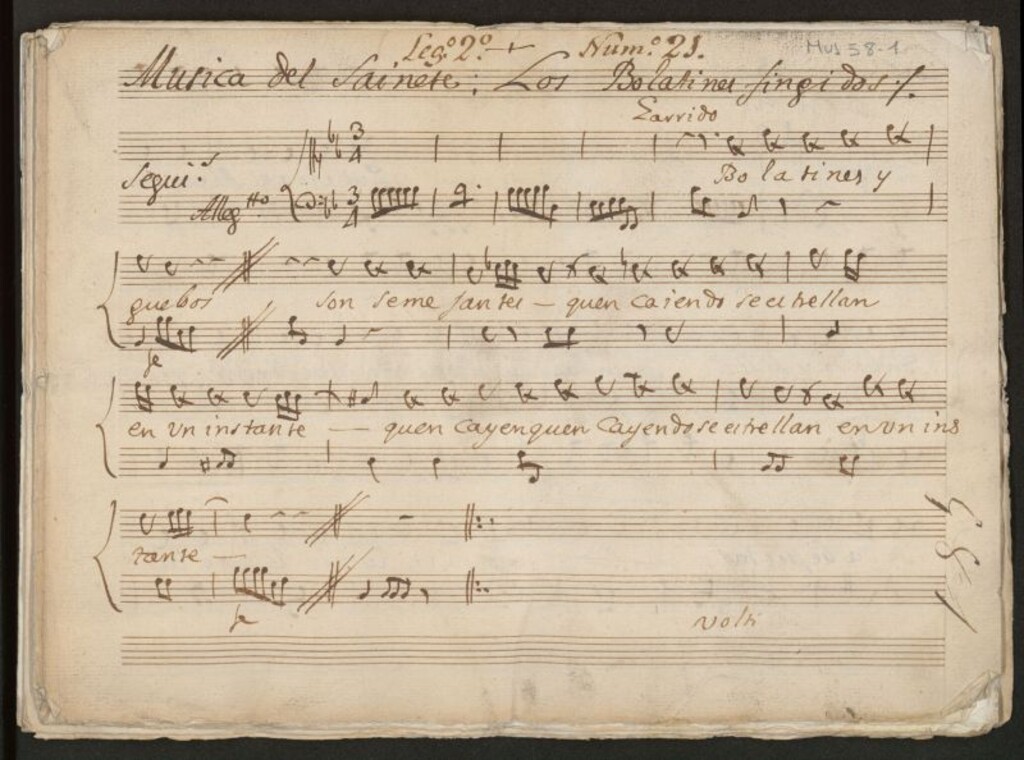 Leg.º 2.º + Num.º 21.
Mus 58-1
Musica del Sainete; Los Bolatines fingidos ·/.
Garrido
3 4
Segui.s
Bolatines y
Alleg.tto
3 4
guebos son semejantes - quen caiendo se estrellan
fe
en un instante - quen Cayenquen Cayendo se estrellan en un ins
tante -
fe
volti